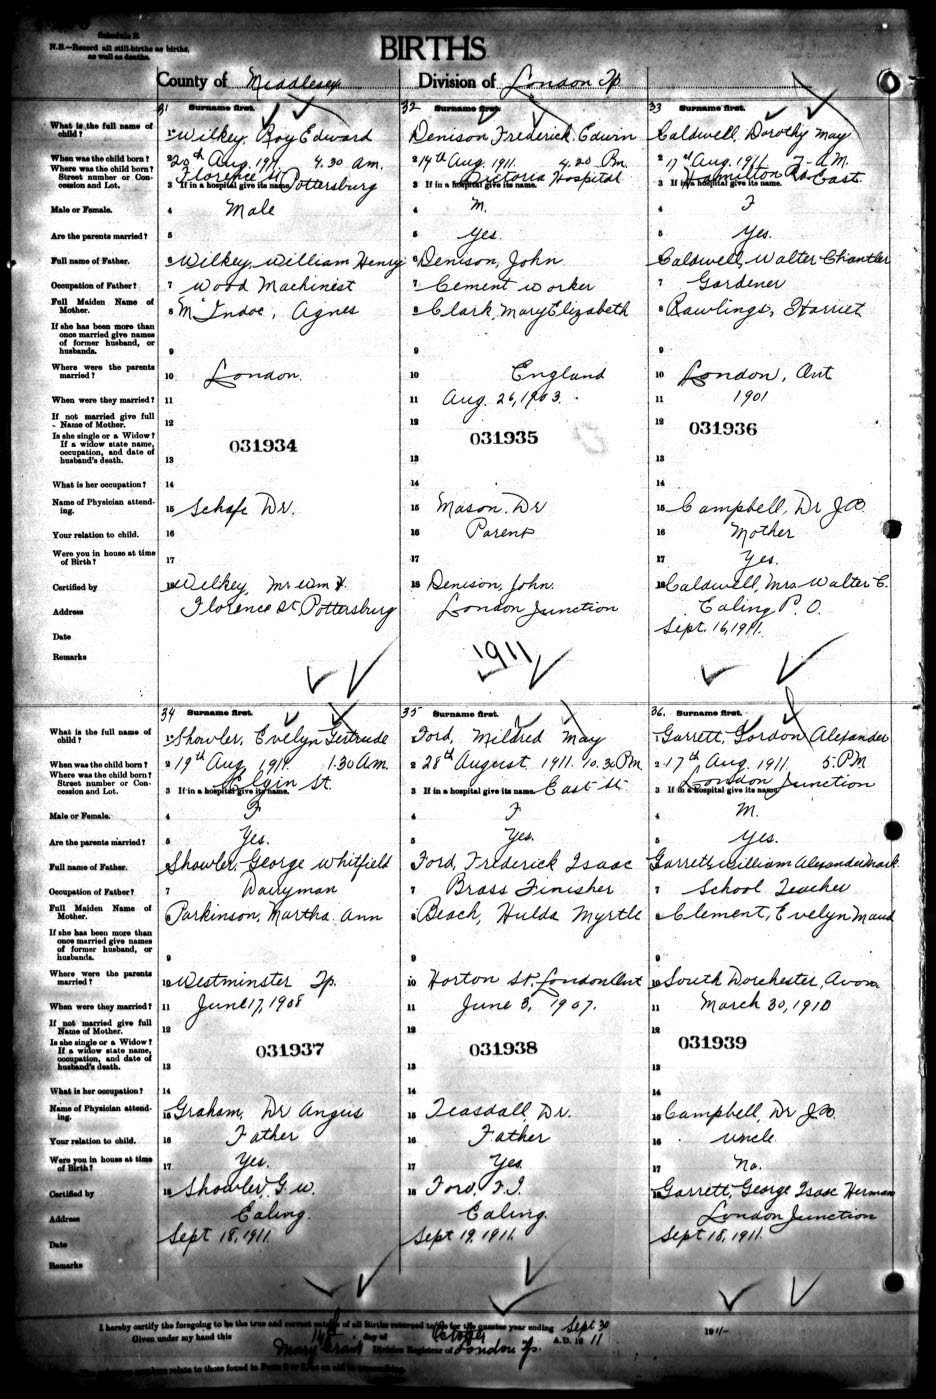 Schedule B.
N.B.—Record all still-births as births,
as well as deaths.
BIRTHS
County of Middlesex Division of London Tp
31 Surname first. 32 Surname first. 33 Surname first.
What is the full name of child? 1 Wilkey, Roy Edward Denison, Frederick Edwin Caldwell, Dorothy May
When was the child born? 2 20th Aug. 1911. 4.30 am. 2 14th Aug. 1911. 4.20 Pm. 2 17th Aug. 1911 7-a.M.
Where was the child born? Street number or Concession and Lot. 3 If in a hospital give its name. Florence St Pottersburg 3 If in a hospital give its name. Victoria Hospital 3 If in a hospital give its name. Hamilton Rd East.
Male or Female. 4 Male 4 M. 4 F
Are the parents married? 5 5 Yes. 5 Yes.
Full name of Father. 6 Wilkey, William Henry 6 Denison, John 6 Caldwell, Walter Chantler
Occupation of Father? 7 Wood Machinest 7 Cement worker 7 Gardener
Full Maiden Name of Mother. 8 McIndoe, Agnes 8 Clark, Mary Elizabeth 8 Rawlings, Harriet
If she has been more than once married give names of former husband, or husbands. 9 9 9
Where were the parents married? 10 London. 10 England 10 London, Ont
When were they married? 11 11 Aug. 26, 1903. 11 1901
If not married give full Name of Mother. 12 12 12
Is she single or a Widow? If a widow state name, occupation, and date of husband's death. 13 031934 13 031935 13 031936
What is her occupation? 14 14 14
Name of Physician attending. 15 Schafe Dr. 15 Mason. Dr 15 Campbell, Dr J.B.
Your relation to child. 16 16 Parent 16 Mother
Were you in house at time of Birth? 17 17 17 Yes.
Certified by 18 Wilkey, Mr Wm H. 18 Denison, John. 18 Caldwell, Mrs Walter C.
Address Florence St. Pottersburg London Junction Ealing P.O.
Date Sept. 16, 1911.
Remarks 1911
34 Surname first. 35 Surname first. 36. Surname first.
What is the full name of child? 1 Showler, Evelyn Gertrude Ford, Mildred May 1 Garrett, Gordon Alexander
When was the child born? 2 19th Aug. 1911. 1.30 A.m. 2 28th August 1911. 10.30 PM 2 17th Aug. 1911. 5 PM
Where was the child born? Street number or Concession and Lot. 3 If in a hospital give its name. Elgin St. 3 If in a hospital give its name. East St. 3 If in a hospital give its name. London Junction
Male or Female. 4 F 4 F 4 M.
Are the parents married? 5 Yes. 5 Yes. 5 Yes.
Full name of Father. 6 Showler, George Whitfield Ford, Frederick Isaac Garrett, William Alexander Mark
Occupation of Father? 7 Dairyman 7 Brass Finisher 7 School Teacher
Full Maiden Name of Mother. 8 Parkinson, Martha Ann 8 Beach, Hulda Myrtle 8 Clement, Evelyn Maud
If she has been more than once married give names of former husband, or husbands. 9 9 9
Where were the parents married? 10 Westminster Tp. 10 Horton St, London Ont 10 South Dorchester, Avon
When were they married? 11 June 17, 1908 11 June 3, 1907. 11 March 30, 1910
If not married give full Name of Mother. 12 12 12
Is she single or a Widow? If a widow state name, occupation, and date of husband's death. 13 031937 13 031938 13 031939
What is her occupation? 14 14 14
Name of Physician attending. 15 Graham, Dr Angus 15 Teasdall Dr. 15 Campbell, Dr J.B.
Your relation to child. 16 Father 16 Father 16 Uncle
Were you in house at time of Birth? 17 Yes. 17 Yes 17 No.
Certified by 18 Showler, G.W. 18 Ford, F.I. 18 Garrett, George Isaac Herman
Address Ealing. Ealing. London Junction
Date Sept 18, 1911. Sept 19, 1911. Sept 18, 1911.
Remarks
I hereby certify the foregoing to be the true and correct of all Births returned to for the quarter year ending Sept 30 1911-
Given under my hand this 14th day of October A.D. 19 11
Mary Division Registrar of London Tp.
numbers relate to those found in Form